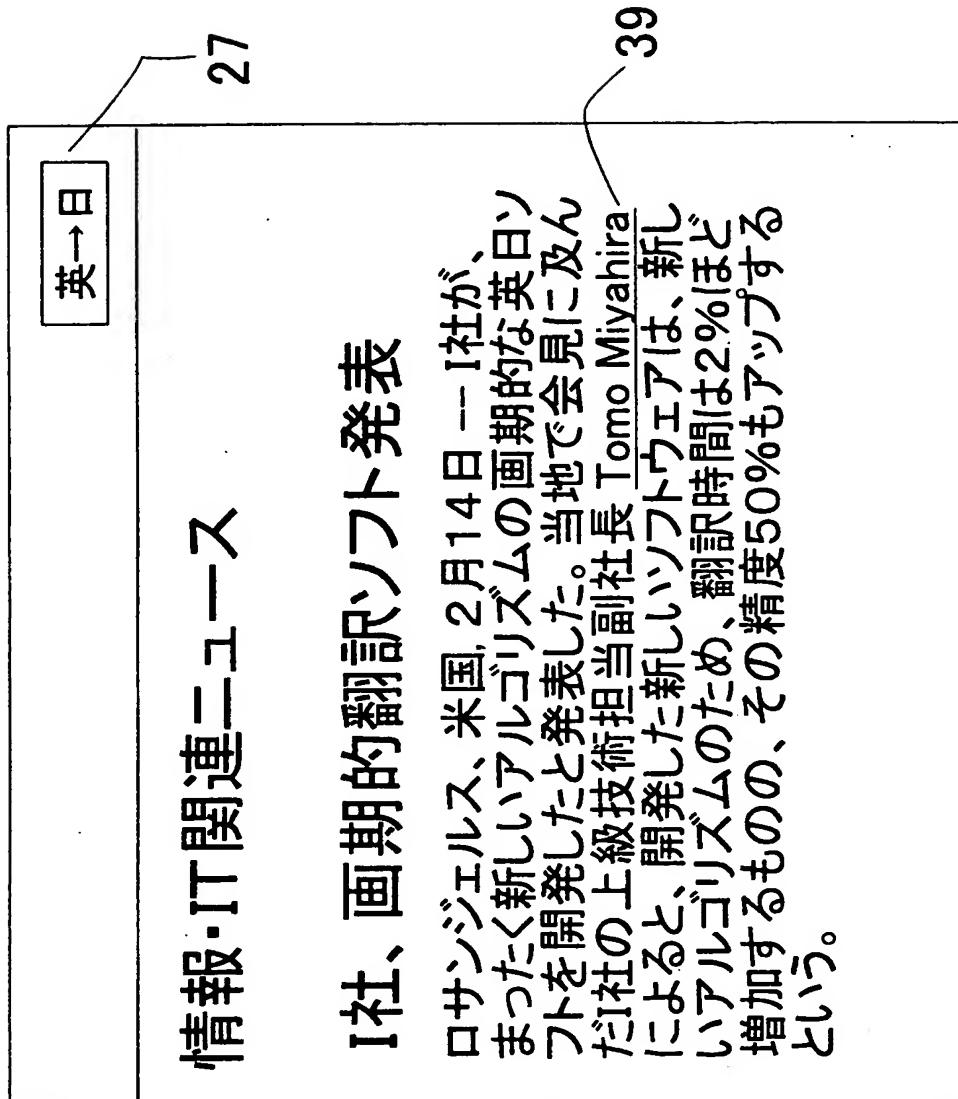 英→日
27
情報・IT関連ニュース
I社、画期的翻訳ソフト発表
ロサンジェルス、米国, 2月14日 -- I社が、
まったく新しいアルゴリズムの画期的な英日ソ
フトを開発したと発表した。当地で会見に及ん
だI社の上級技術担当副社長 Tomo Miyahira
39
によると、開発した新しいソフトウェアは、新し
いアルゴリズムのため、翻訳時間は2%ほど
増加するものの、その精度50%もアップする
という。